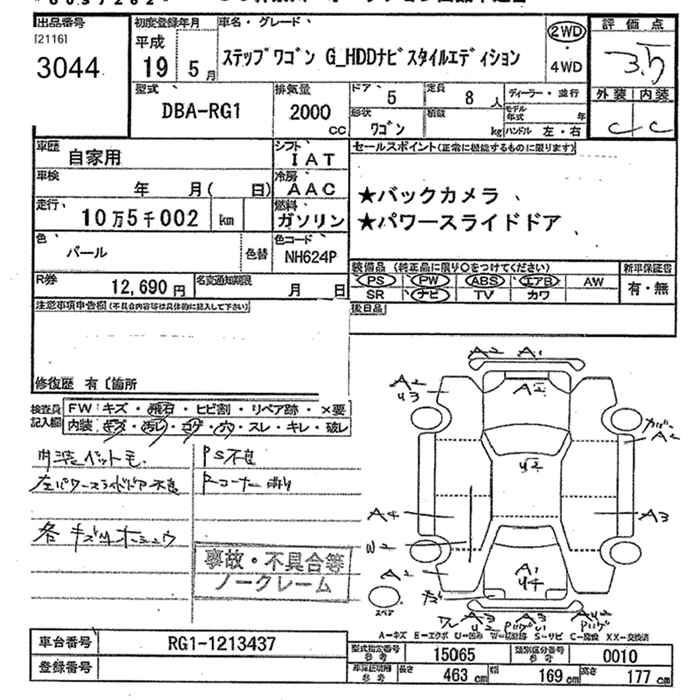 出品番号 初度登録年月 車名・グレード 評価点
[2116]
3044 平成 19 5 月 ステップワゴン G_HDDナビスタイルエディション 2WD ・ 4WD 3.5
型式 排気量 ドア 5 定員 8 人 ディーラー・並行 外装 内装
DBA-RG1 2000 cc 形状 ワゴン 積載 kg モデル年式 年 ハンドル 左・右 C C
車歴 自家用 シフト IAT セールスポイント(正常に機能するものに限ります)
車検 年 月( 日) 冷房 AAC ★バックカメラ
走行 10万5千002 km 燃料 ガソリン ★パワースライドドア
色 パール 色替 色コード NH624P
装備品(純正品に限り○をつけてください) 新車保証書
R券 12,690 円 名変通知期限 月 日 PS PW ABS エアB AW 有・無
SR ナビ TV カワ
注意事項申告欄(不具合内容等は具体的に記入して下さい) 後日品
修復歴 有〔箇所
検査員記入欄 FW キズ・飛石・ヒビ割・リペア跡・×要
内装 キズ・汚レ・コゲ・穴・スレ・キレ・破レ
PS不良
左パワースライドドア不良
事故・不具合等
ノークレーム
A2 A1
A2
U3
A2
A2
U2
A4 A3
W2
A2 A1
U4
スペア
A-キズ E-エクボ U-凹み S-サビ C-腐蝕 XX-交換済
車台番号 RG1-1213437 型式指定番号 参考 15065 類別区分番号 参考 0010
登録番号 車体証明欄 参考 長さ 463 cm 幅 169 cm 高さ 177 cm